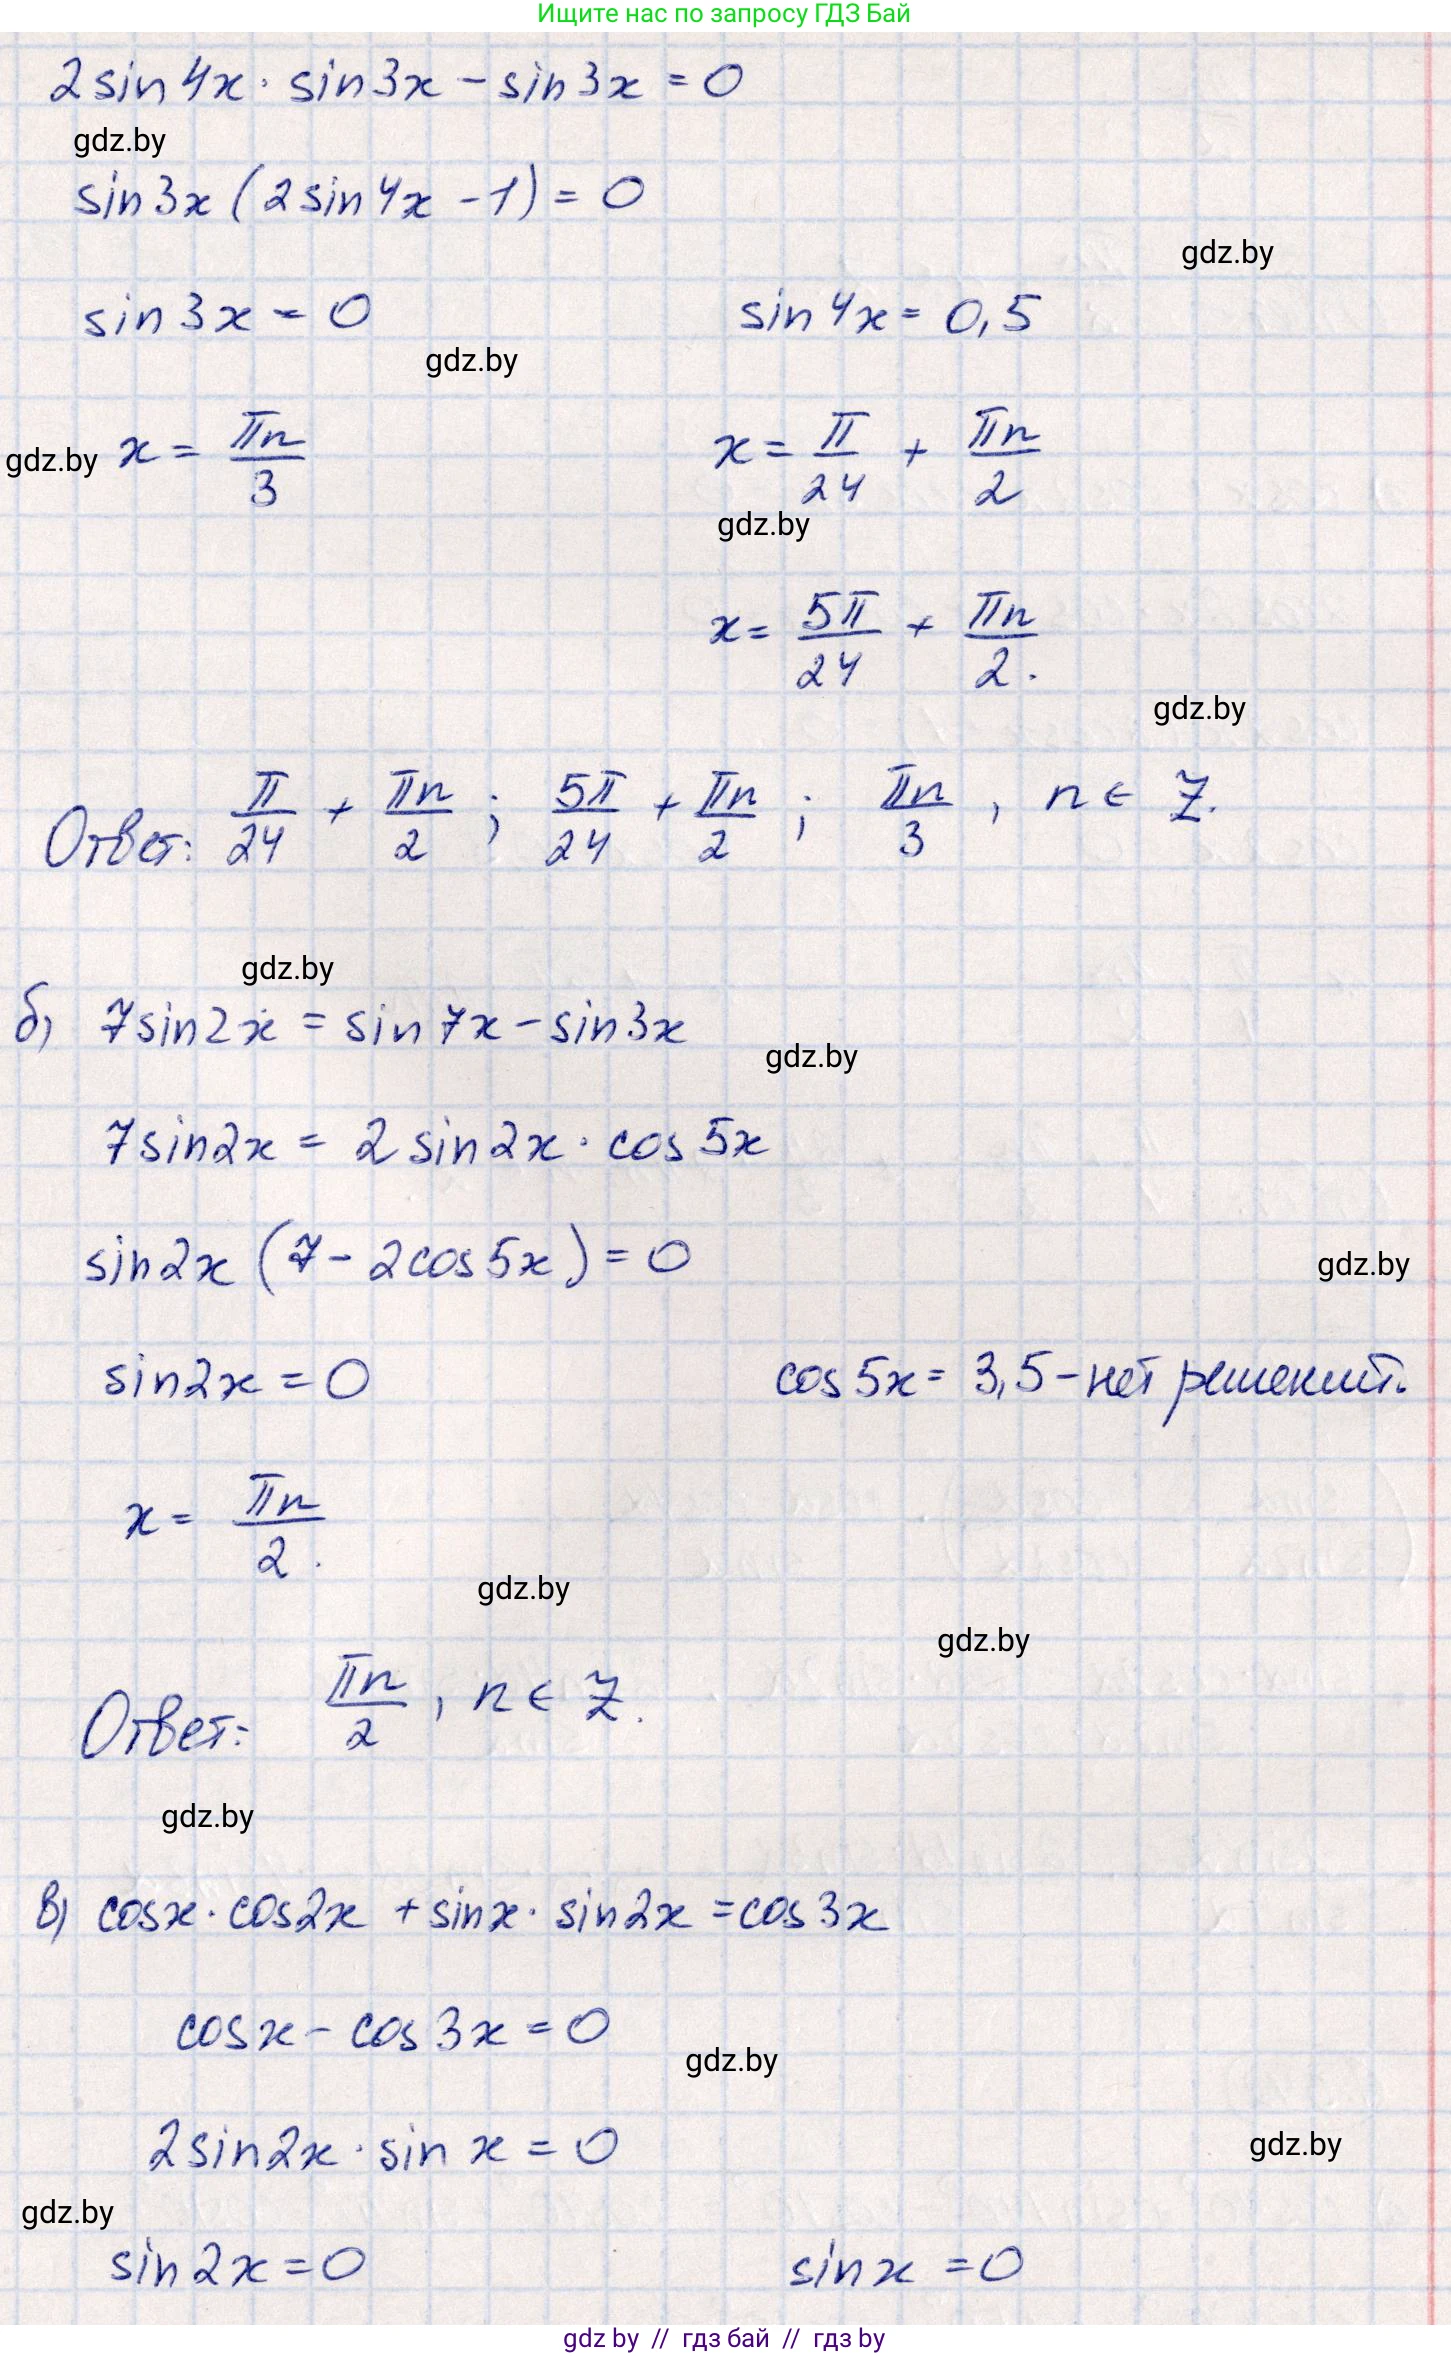 Ищите нас по запросу ГДЗ Бай
2sin4x · sin3x - sin3x = 0
gdz.by
sin3x (2sin4x - 1) = 0
gdz.by
sin3x = 0 sin4x = 0,5
gdz.by
gdz.by x = πn/3 x = π/24 + πn/2
gdz.by
x = 5π/24 + πn/2.
gdz.by
Ответ: π/24 + πn/2 ; 5π/24 + πn/2 ; πn/3 , n ∈ Z.
gdz.by
б) 7sin2x = sin7x - sin3x
gdz.by
7sin2x = 2sin2x · cos5x
sin2x (7 - 2cos5x) = 0
gdz.by
sin2x = 0 cos5x = 3,5 - нет решений.
x = πn/2.
gdz.by
gdz.by
Ответ: πn/2 , n ∈ Z.
gdz.by
в) cosx · cos2x + sinx · sin2x = cos3x
cosx - cos3x = 0
gdz.by
2sin2x · sin x = 0
gdz.by
gdz.by
sin2x = 0 sinx = 0
gdz by // гдз бай // гдз by